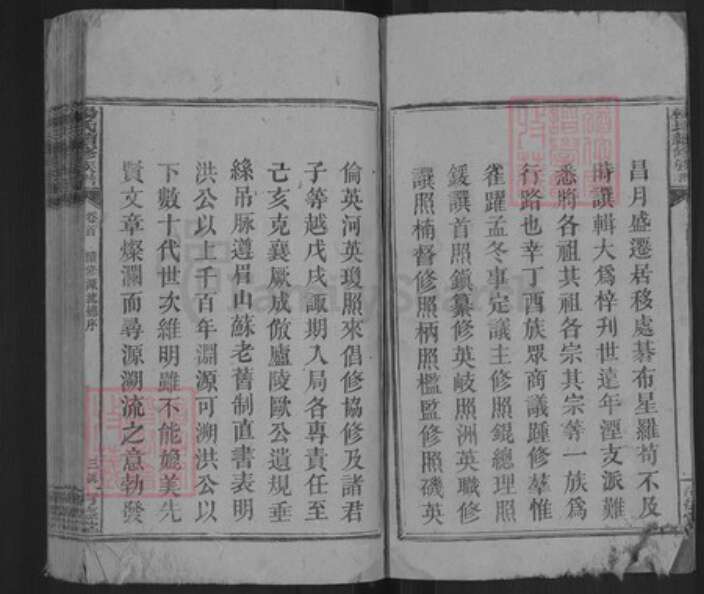 昌月盛遷居移處棊布星羅苟不及
時譔輯大為梓刊世遠年湮支派難
悉將各祖其祖各宗其宗等一族為
行路也辛丁酉族眾商議踵修羣惟
雀躍孟冬事定議主修照錕總理照
鍰譔首照鎮纂修英岐照洲英職修
譔照楠督修照柄照檻監修照磯英
倫英河英瓊照來倡修協修及諸君
子等越戊戌諏期入局各專責任至
己亥克襄厥成倣廬陵歐公遺規垂
絲吊脉遵眉山蘇老舊制直書表明
洪公以上千百年淵源可溯洪公以
下數十代世次維明雖不能媲美先
賢文章燦瀾而尋源溯流之意勃發
氏續修族譜
卷首